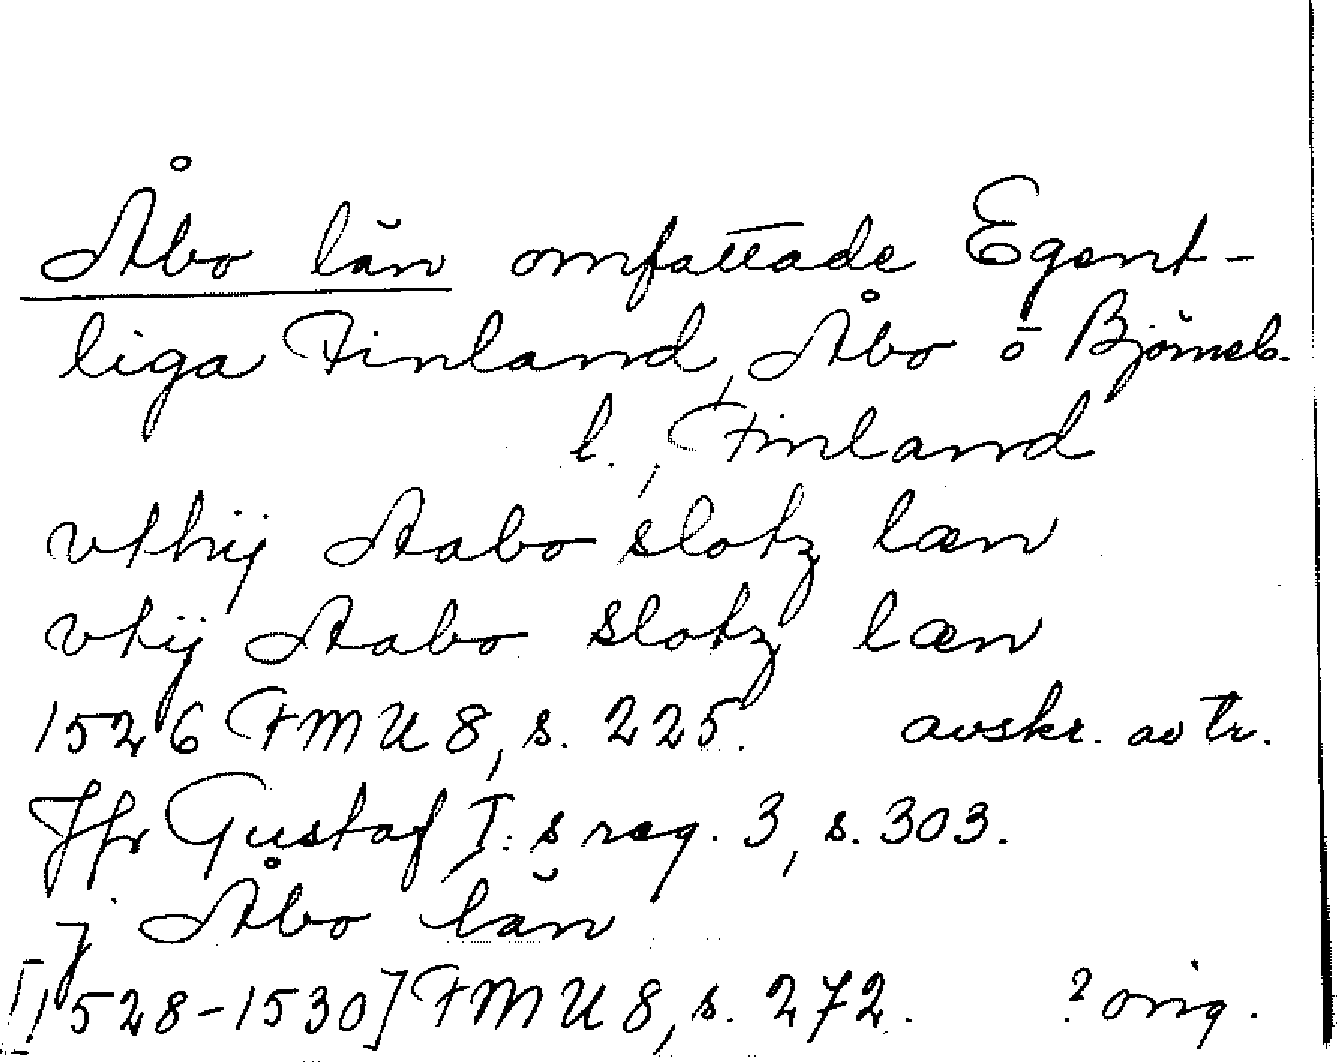 Åbo län omfattade Egent-
liga Finland, Åbo o Björneb.
l., Finland
vthij Aabo slotz læn
vtij Aabo slotz læn
1526 FMU 8, s. 225. avskr. av tr.
Jfr Gustaf I:s reg. 3, s. 303.
j Åbo län
[1528-1530] FMU 8, s. 272. ? orig.